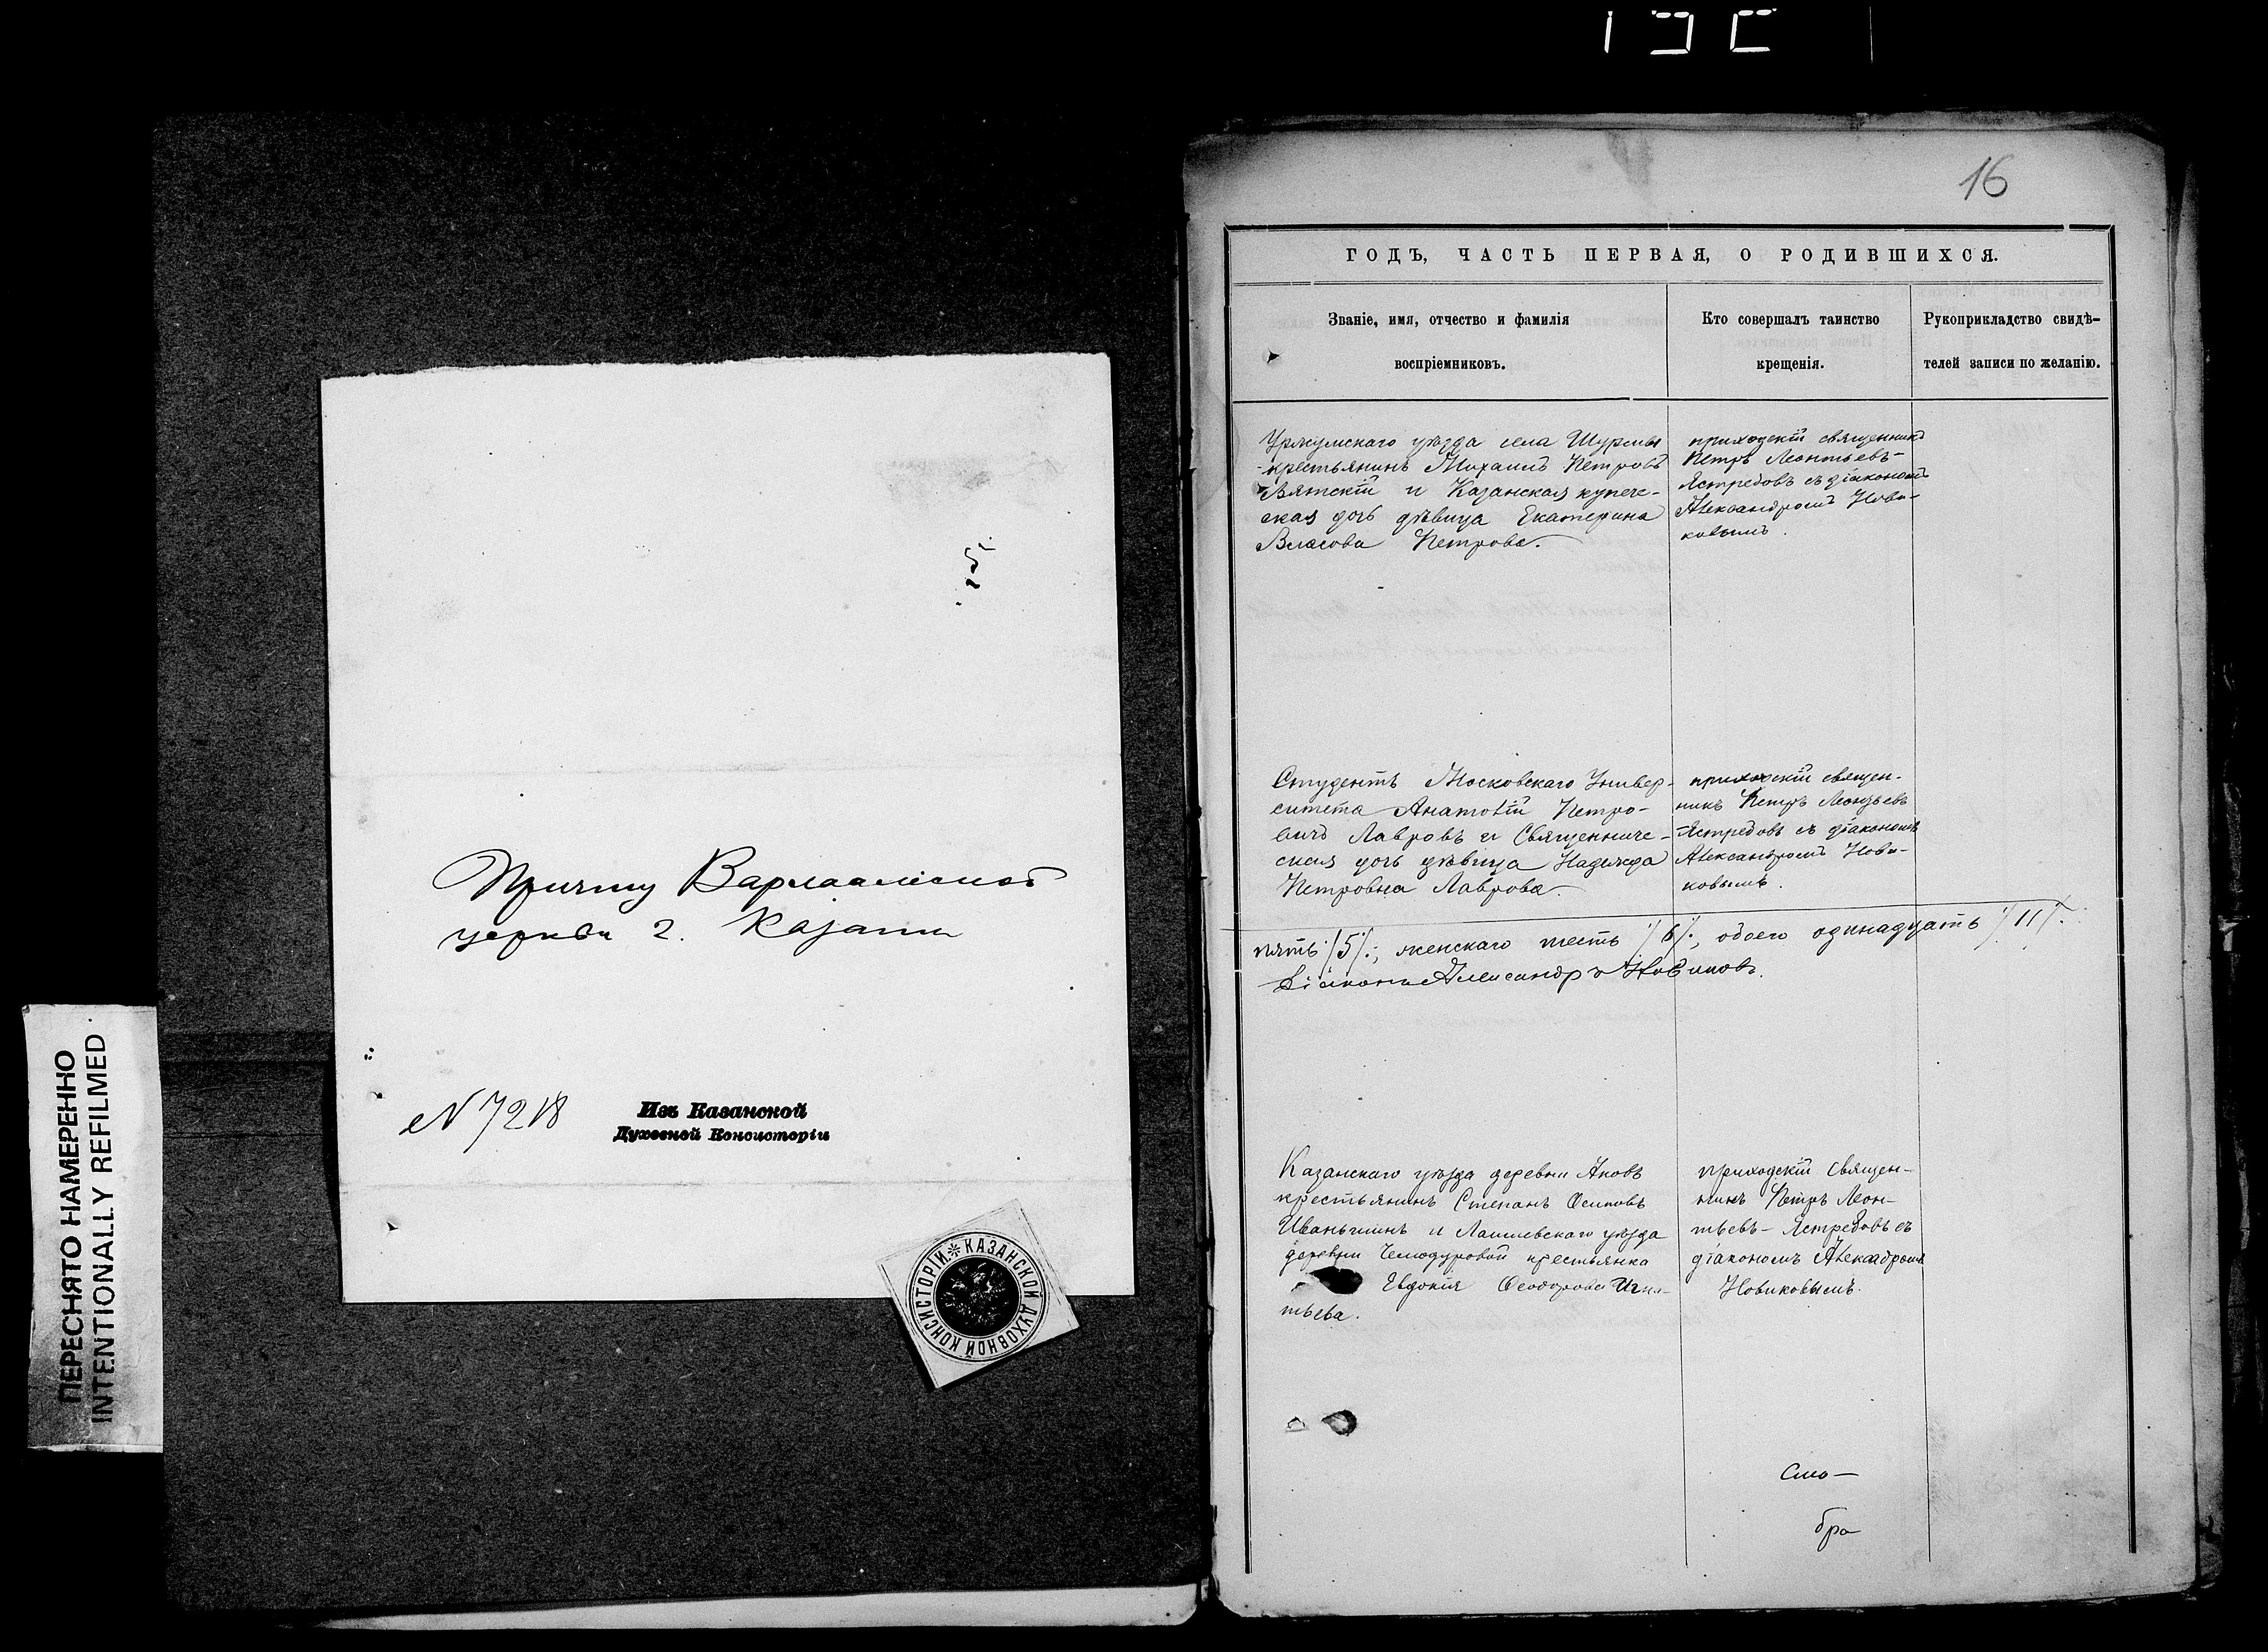 ПЕРЕСНЯТО НАМЕРЕННО
INTENTIONALLY REFILMED
Причту Варлаамской
церкви г. Казани
N 7218
Изъ Казанской
Духовной Консисторіи
КАЗАНСКОЙ ДУХОВНОЙ КОНСИСТОРІИ
16
ГОДЪ, ЧАСТЬ ПЕРВАЯ, О РОДИВШИХСЯ.
Званіе, имя, отчество и фамилія
воспріемниковъ.
Кто совершалъ таинство
крещенія.
Рукоприкладство свидѣ-
телей записи по желанію.
Уржумскаго уѣзда села Шурмы
крестьянинъ Михаилъ Петровъ
Вятскій и Казанская купече-
ская дочь дѣвица Екатерина
Власова Петрова.
приходскій священникъ
Петръ Леонтьевъ-
Ястребовъ съ діакономъ
Александромъ Нови-
ковымъ.
Студентъ Московскаго Универ-
ситета Анатолій Петро-
вичъ Лавровъ и Священниче-
ская дочь дѣвица Надежда
Петровна Лаврова.
приходскій священ-
никъ Петръ Леонтьевъ
Ястребовъ съ діакономъ
Александромъ Нови-
ковымъ.
пять /5/.; женскаго шесть /6/., обоего одинадцать /11/.
Діаконъ Александръ Новиковъ.
Казанскаго уѣзда деревни
крестьянинъ Степанъ Осиповъ
Иваньшинъ и Лаишевскаго уѣзда
деревни Чемодуровой крестьянка
Евдокія Ѳеодорова Игна-
тьева.
приходскій Священ-
никъ Петръ Леон-
тьевъ-Ястребовъ съ
діакономъ Александромъ
Новиковымъ.
бра